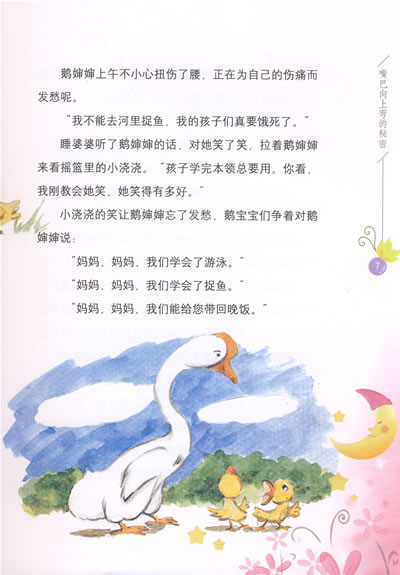 鹅婶婶上午不小心扭伤了腰，正在为自己的伤痛而
发愁呢。
“我不能去河里捉鱼，我的孩子们真要饿死了。”
睡婆婆听了鹅婶婶的话，对她笑了笑，拉着鹅婶婶
来看摇篮里的小浇浇。“孩子学完本领总要用。你看，
我刚教会她笑，她笑得有多好。”
小浇浇的笑让鹅婶婶忘了发愁，鹅宝宝们争着对鹅
婶婶说：
“妈妈，妈妈，我们学会了游泳。”
“妈妈，妈妈，我们学会了捉鱼。”
“妈妈，妈妈，我们能给您带回晚饭。”
嘴巴向上弯的秘密
7